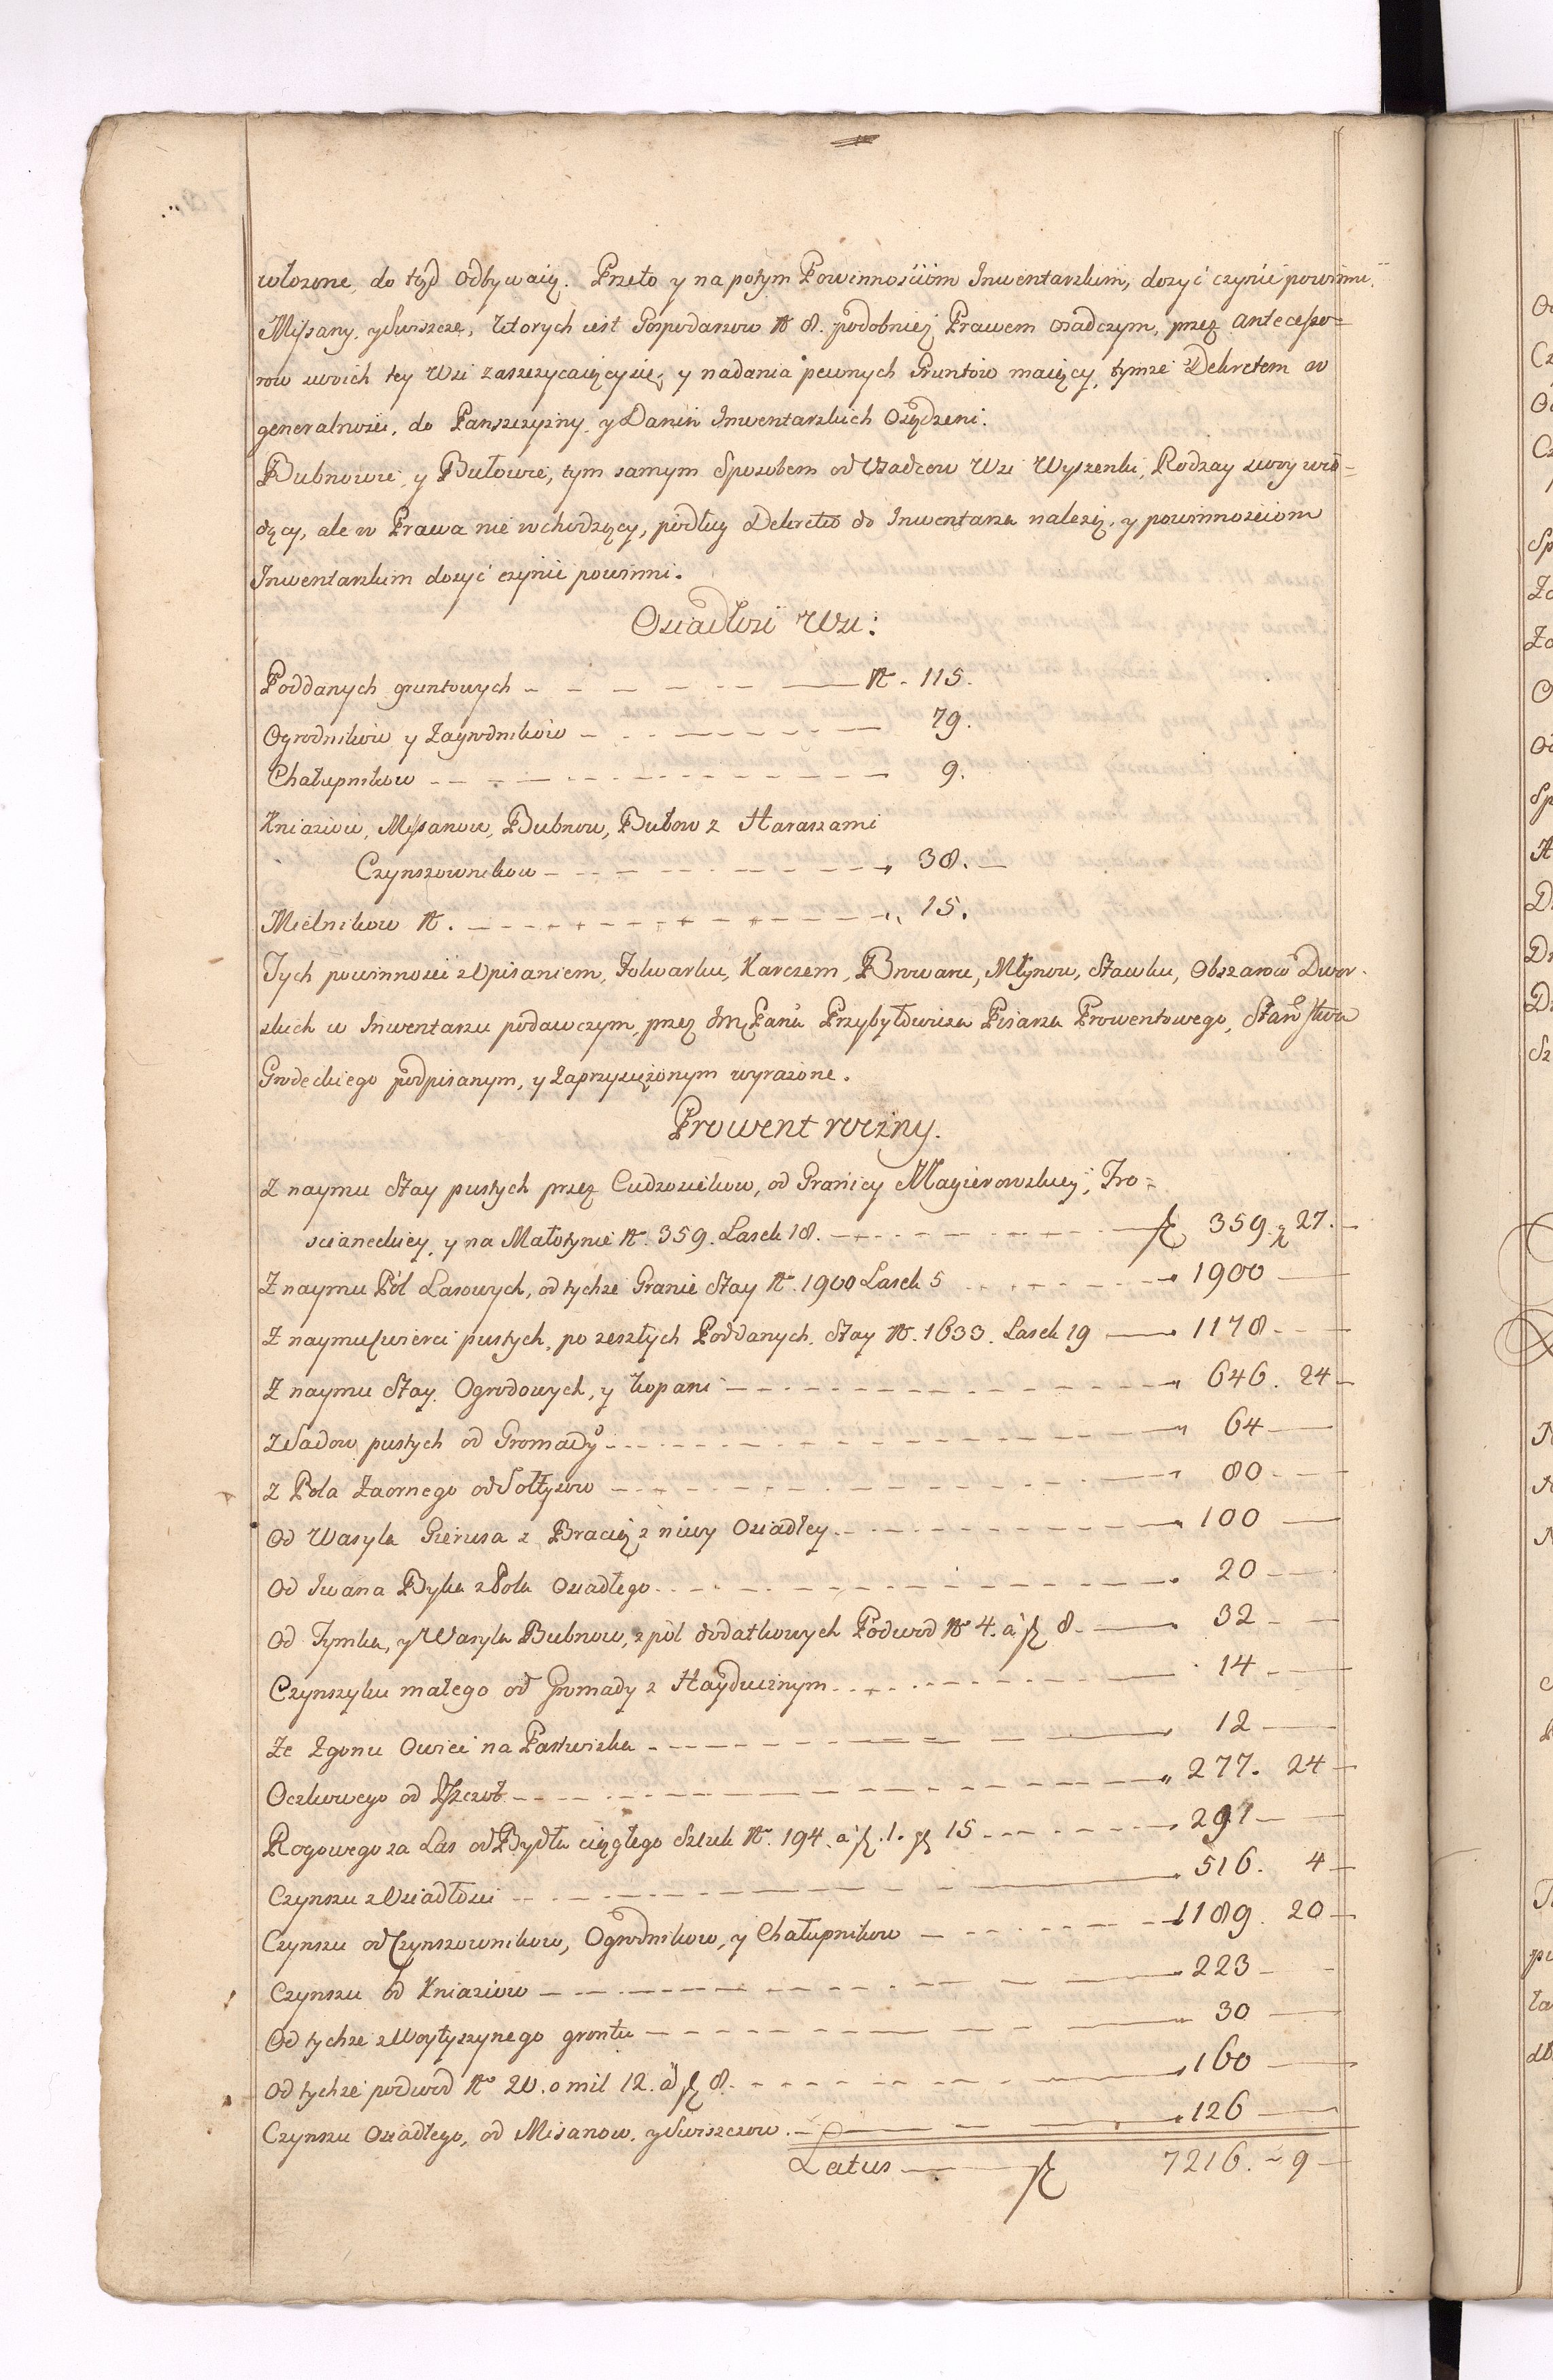 włozone, do tąd Odbywaią. Przeto y na potym Powinnościom Inwentarskim, dosyć czynić powinni.
Missany, y Swiszcze, Ktorych iest Gospodarzow N 8. podobnież Prawem osadczym, przez Antecesso=
row swoich tey Wsi zaszczycaiący się, y nadania pewnych Gruntow maiący, tymże Dekretem w
generalności, do Panszczyzny y Danin Inwentarskich Osądzeni.
Bubnowie, y Bułowie, tym samym Sposobem od Osadcow Wsi Wyszenki, Rodzay swoy wio=
dący, ale w Prawa nie wchodzący, podług Dekretu do Inwentarza należą, y powinnosciom
Inwentarskim dosyć czynić powinni.
Osiadłość Wsi:
Poddanych gruntowych N. 115.
Ogrodnikow y Zagrodnikow 79.
Chałupnikow 9.
Kniaziow, Missanow, Bubnow, Bułow z Haraszami
Czynszownikow 38.
Mielnikow N. 15.
Tych powinności z Opisaniem, Folwarku, Karczem, Browaru, Młynow, Stawku, Obszarow Dwor-
skich w Inwentarzu podawczym, przez Jmć Pana Przybyłowicza Pisarza Prowentowego, Starostwa
Grodeckiego podpisanym, y zaprzysiężonym wyrażone.
Prowent roczny.
Z naymu Stay pustych przez Cudzosielcow, od Granicy Magierowskiey, Tro=
scianeckiey, y na Małotynie N. 359. Lasek 18. 359. 27.
Z naymu Pól Lasowych, od tychże Granic Stay N. 1900 Lasek 5 1900
Z naymu Cwierci pustych, po zeszłych Poddanych, Stay N. 1633. Lasek 19 1178
Z naymu Stay Ogrodowych, y kopani 646. 24
Z Sadow pustych od Gromady 64
Z Pola Zaornego od Sołtysow 80
Od Wasyla Gierusa z Bracią, z niwy Osiadłey 100
Od Iwana Byka z Pola Osiadłego 20
Od Tymka, y Wasyla Bubnow, z pól dodatkowych Podwod N 4. a f 8. 32
Czynszyku małego od Gromady z Hayducznym 14
Ze Zgonu Owiec na Pastwiska 12
Oczkowego od Pszczoł 277. 24
Rogowego za Las od Bydła ciągłego Sztuk N. 194. a f. 1. g 15 291
Czynszu z Osiadłości 516. 4
Czynszu od Czynszownikow, Ogrodnikow, y Chałupnikow 1189. 20
Czynszu od Kniaziow 223
Od tychże z Woytyszynego gruntu 30
Od tychże podwod N 20. o mil 12. a f 8. 160
Czynszu Osiadłego, od Misanow, y Swiszczow 126
Latus f 7216. 9